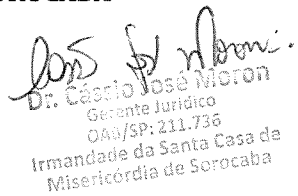 Dr. Cássio José Moron
Gerente Jurídico
OAB/SP: 211.736
Irmandade da Santa Casa de
Misericórdia de Sorocaba